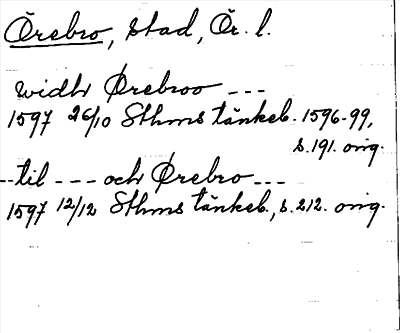 Örebro, stad, Ör. l.
widh Ørebroo ---
1597 26/10 Sthms tänkeb. 1596-99,
s. 191. orig.
-- til --- och Ørebro ---
1597 12/12 Sthms tänkeb., s. 212. orig.